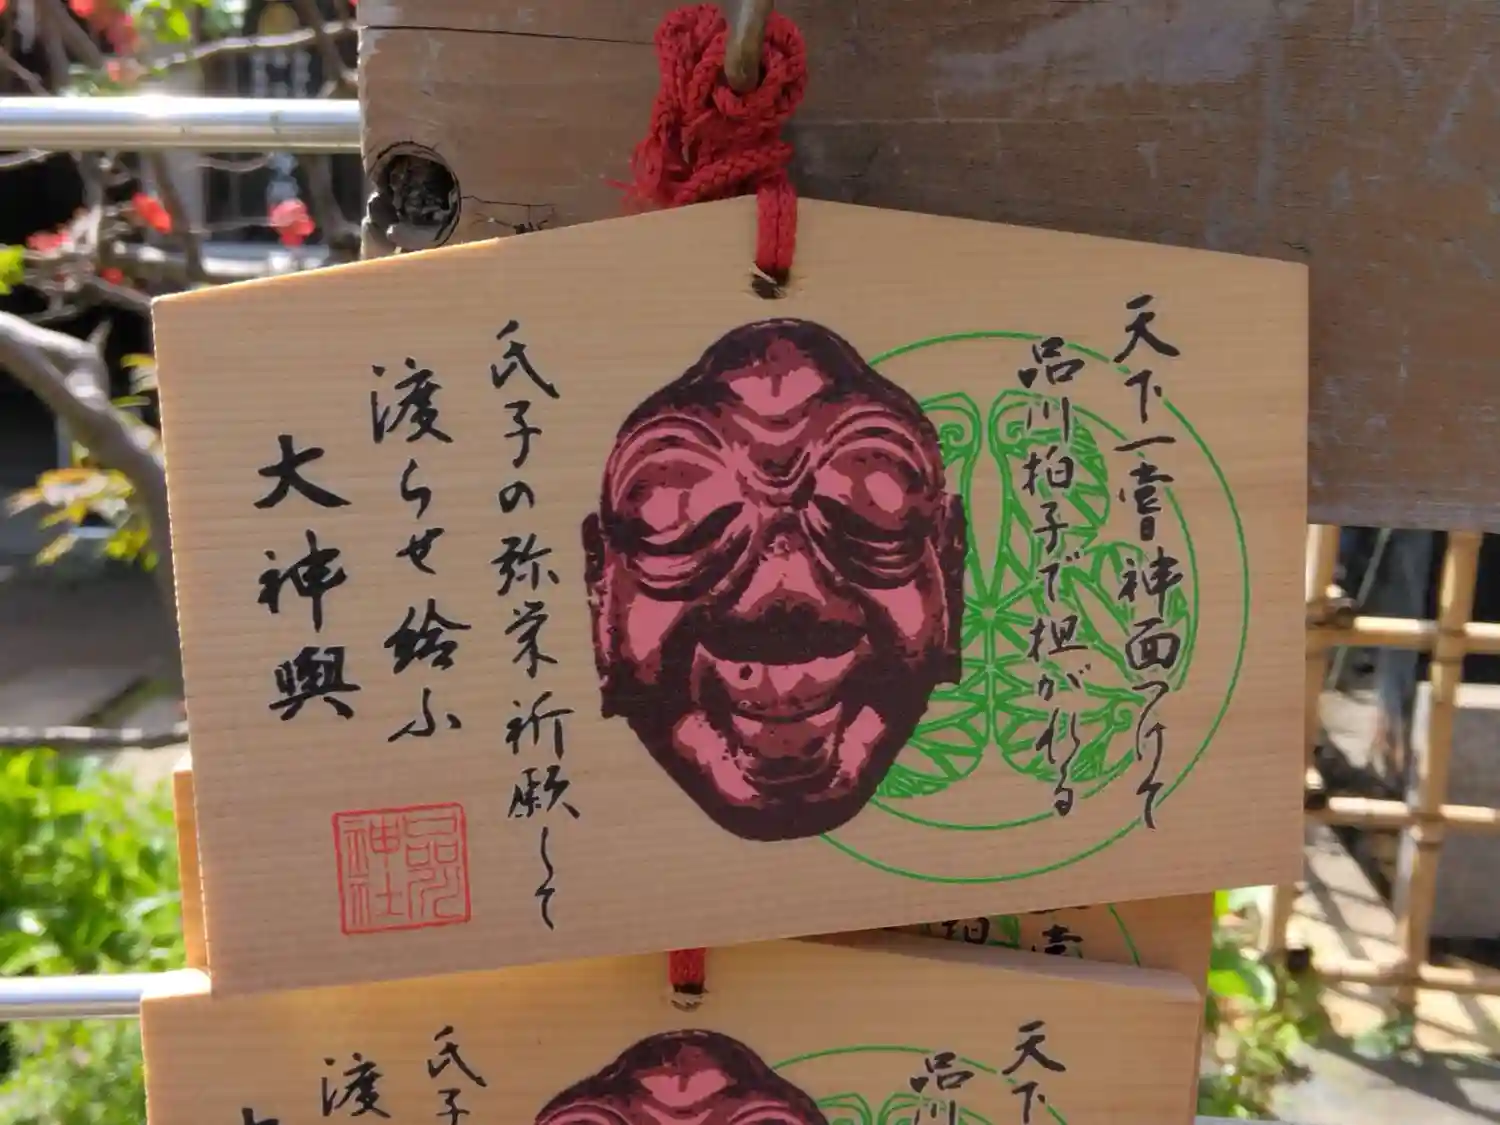 天下一嘗神面つけて
品川拍子で担がれる
氏子の弥栄祈願して
渡らせ給ふ
大神輿
品川
神社
拍
嘗
天下
品川
氏子
渡